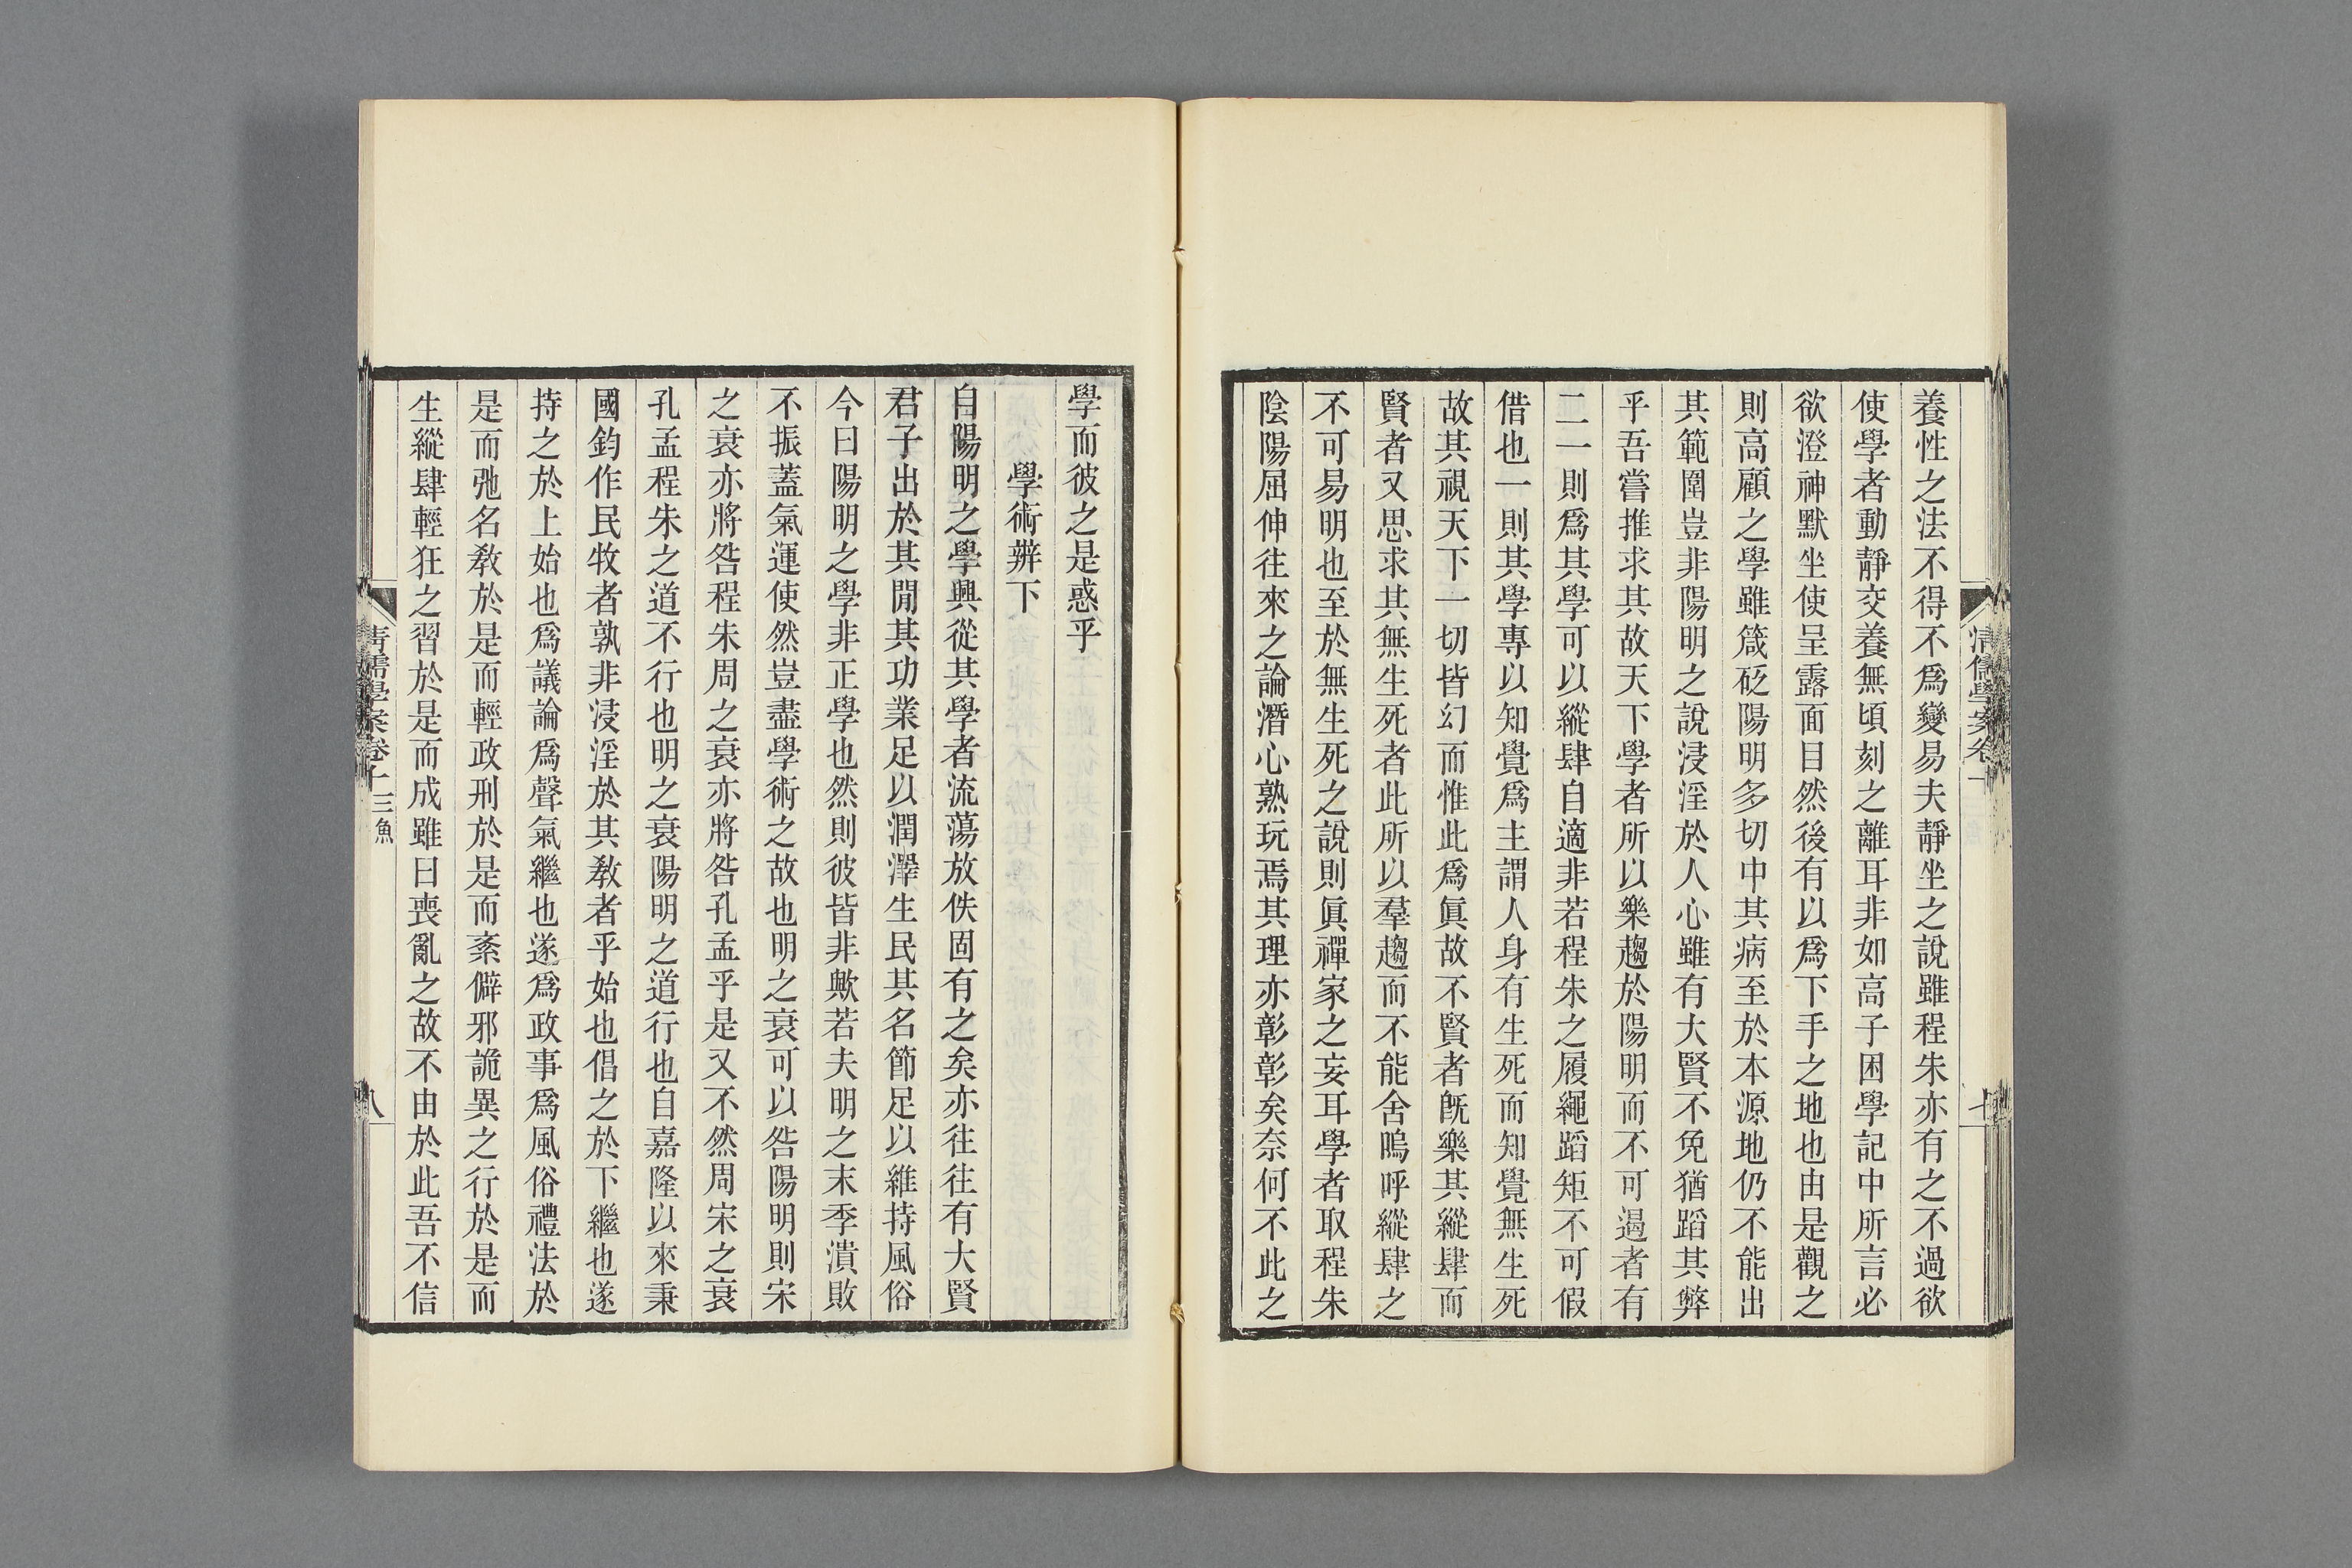 養性之法不得不爲變易夫靜坐之說雖程朱亦有之不過欲
使學者動靜交養無頃刻之離耳非如高子困學記中所言必
欲澄神默坐使呈露面目然後有以爲下手之地也由是觀之
則高顧之學雖箴砭陽明多切中其病至於本源地仍不能出
其範圍豈非陽明之說浸淫於人心雖有大賢不免猶蹈其弊
乎吾嘗推求其故天下學者所以樂趨於陽明而不可遏者有
二一則爲其學可以縱肆自適非若程朱之履繩蹈矩不可假
借也一則其學專以知覺爲主謂人身有生死而知覺無生死
故其視天下一切皆幻而惟此爲眞故不賢者旣樂其縱肆而
賢者又思求其無生死者此所以羣趨而不能舍嗚呼縱肆之
不可易明也至於無生死之說則眞禪家之妄耳學者取程朱
陰陽屈伸往來之論潛心熟玩焉其理亦彰彰矣奈何不此之
清儒學案卷十
七
學而彼之是惑乎
學術辨下
自陽明之學興從其學者流蕩放佚固有之矣亦往往有大賢
君子出於其閒其功業足以潤澤生民其名節足以維持風俗
今曰陽明之學非正學也然則彼皆非歟若夫明之末季潰敗
不振蓋氣運使然豈盡學術之故也明之衰可以咎陽明則宋
之衰亦將咎程朱周之衰亦將咎孔孟乎是又不然周宋之衰
孔孟程朱之道不行也明之衰陽明之道行也自嘉隆以來秉
國鈞作民牧者孰非浸淫於其敎者乎始也倡之於下繼也遂
持之於上始也爲議論爲聲氣繼也遂爲政事爲風俗禮法於
是而弛名敎於是而輕政刑於是而紊僻邪詭異之行於是而
生縱肆輕狂之習於是而成雖曰喪亂之故不由於此吾不信
清儒學案卷十 三魚
八